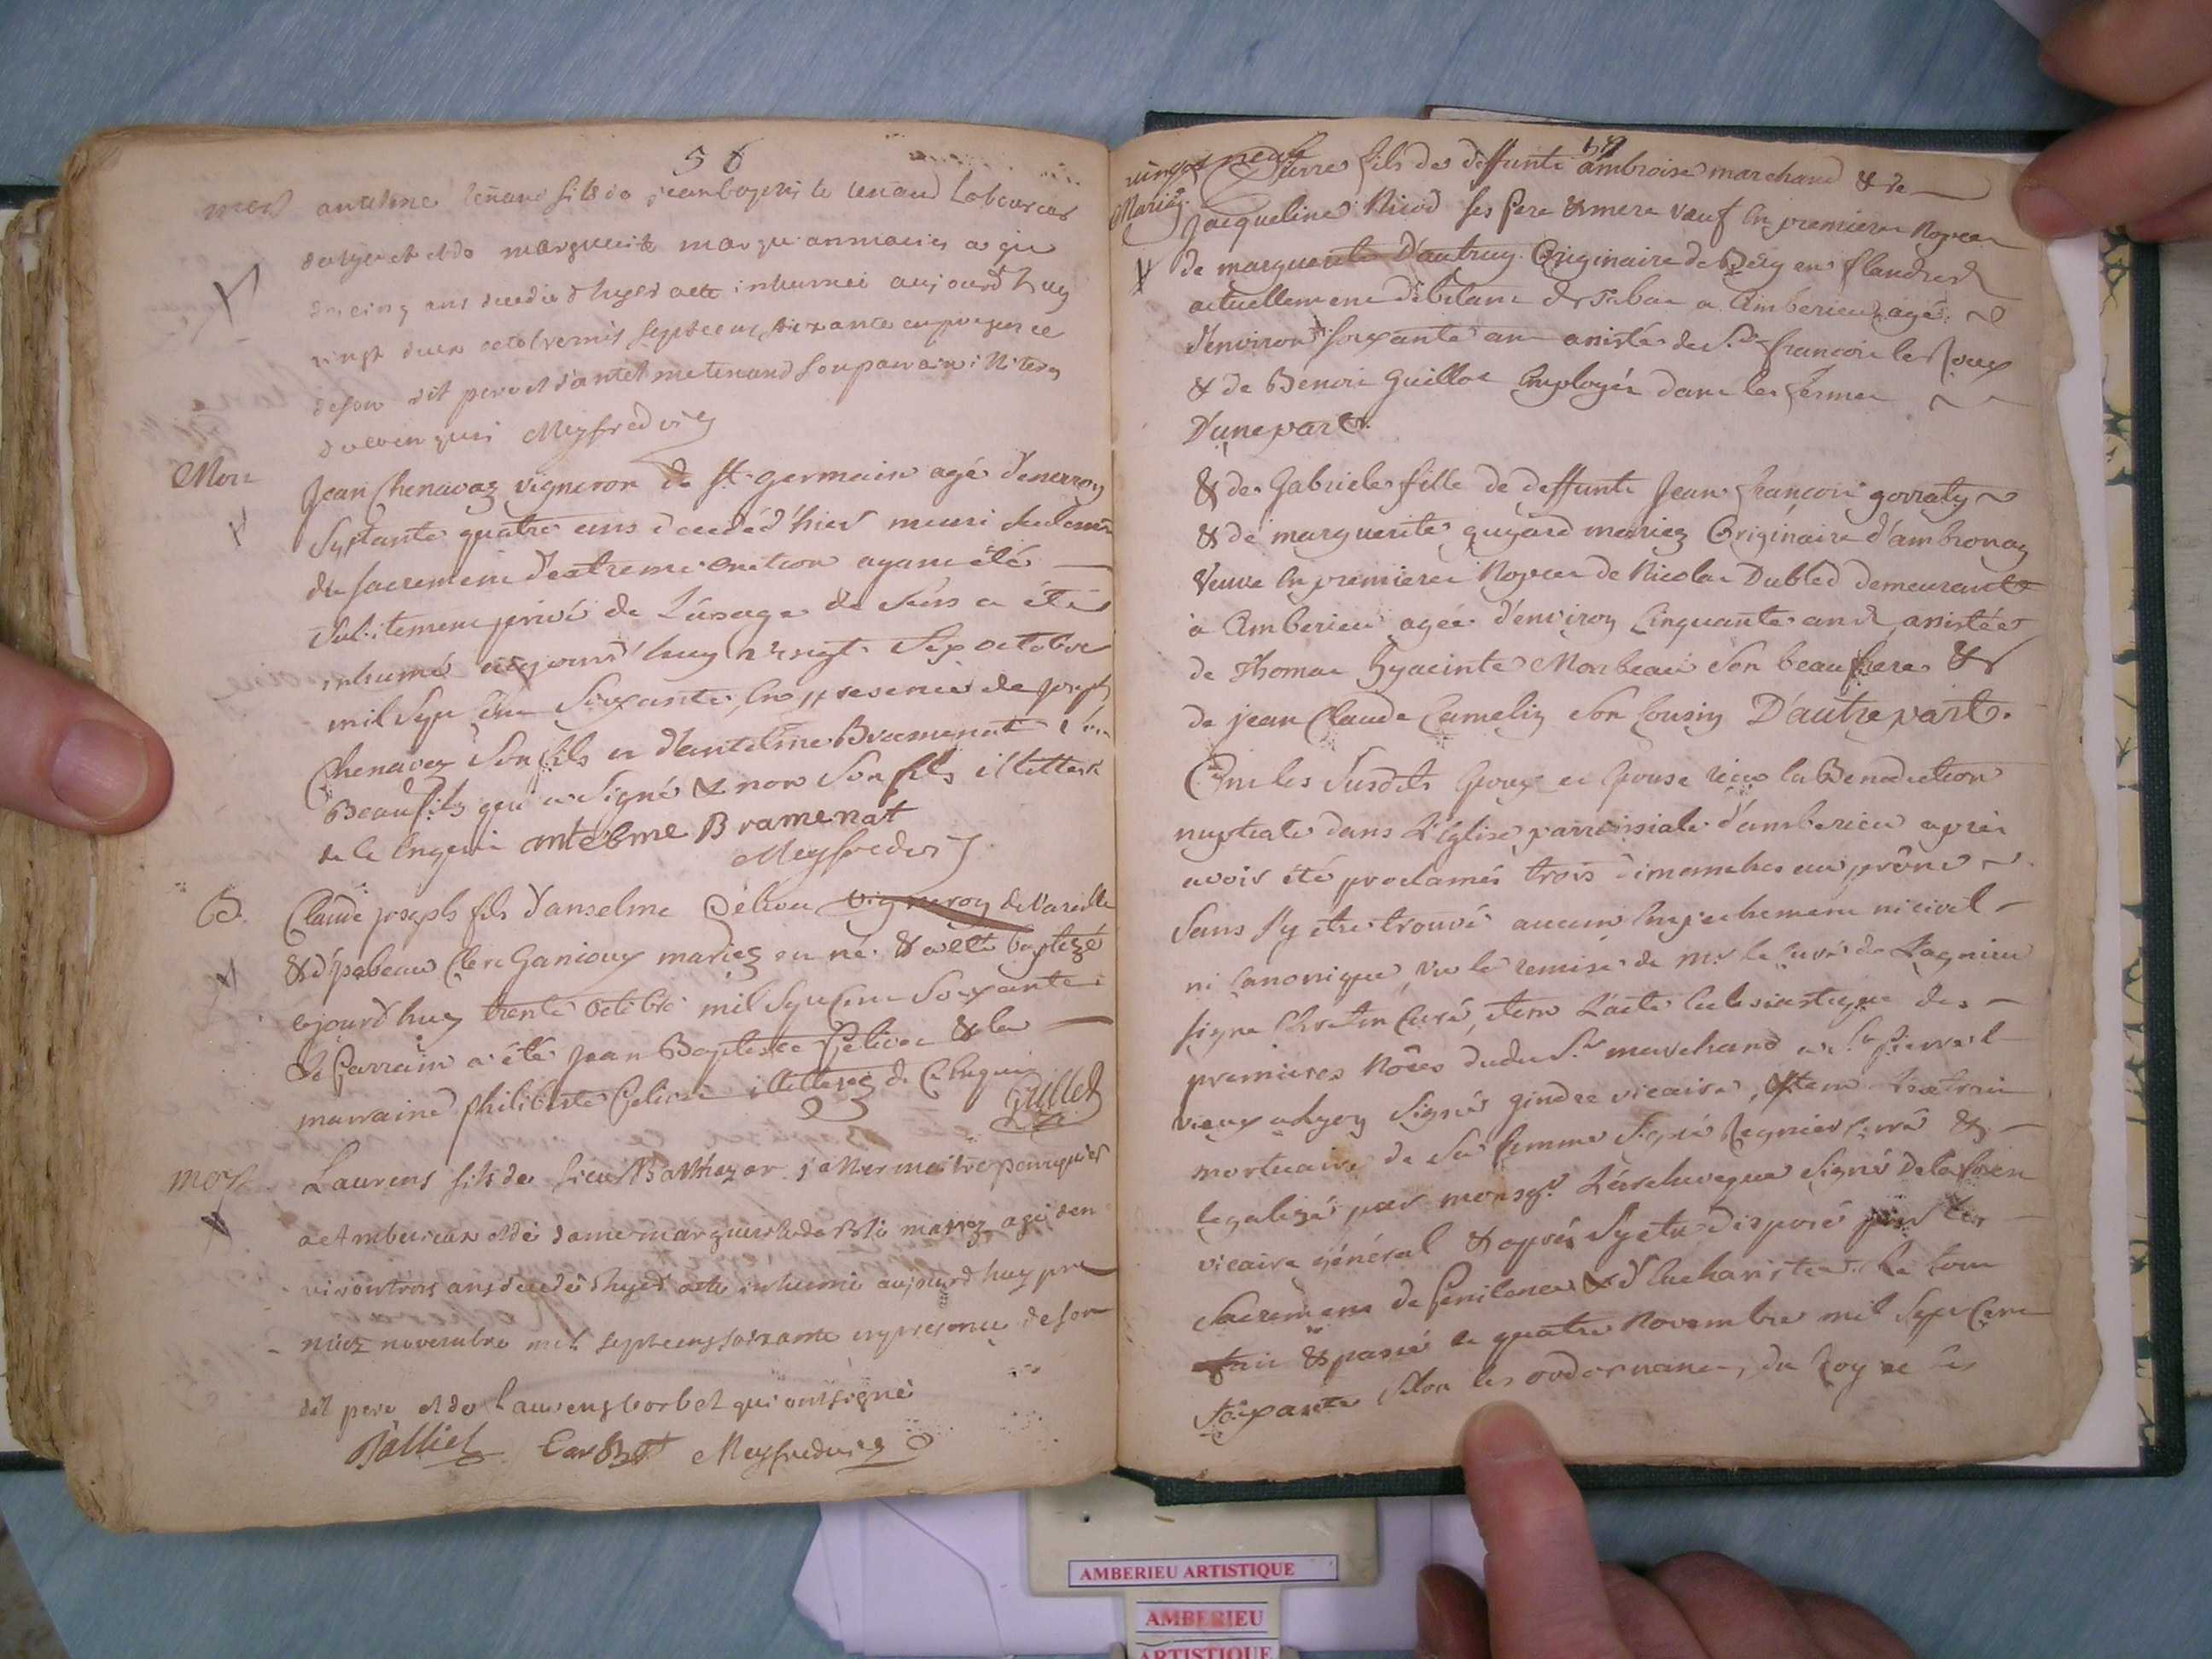 56
mort antelme tenand fils de jean baptiste tenand laboureur
et de marguerite marguin mariés agé
de cinq ans decedé d'hyer a ette inhumé aujourd'huy
vingt deux octobre mil sept cent soixante en presence
de son dit pere et d'antelme tenand son parain illiteres
de ce enquis Meyfredier
Mort Jean Chenavaz vigneron de St. germain agé d'environ
Septante quatre ans decedé d'hier muni seulement
du sacrement d'extreme onction ayant été
subitement privé de l'usage de sens a été
inhumé aujourd'huy vingt Six octobre
mil Sept Cent Soixante, en presence de joseph
Chenavaz Son fils et d'antelme Bramenat Son
Beaufils qui a Signé & non Son fils illetteré
de ce enquis antelme Bramenat
Meyfredier
B. Claude joseph fils d'anselme vigneron de Vareille
& d'ysabeau Clere mariez est né & a ette baptizé
aujourd'huy trente octobre mil Sept Cent Soixante
Le Parrain a été Jean Baptiste & la
marraine philiberte illetterez de ce enquis
Gullet
mort Laurens fils de sieur Balthazar
a Amberieux et de dame marguerite mariez agé den
viron trois ans decedé d'hyer a ette inhumé aujourd'huy pre
mier novembre mil sept cens soixante en presence de son
dit pere et de Laurens Corbet qui ont signé
Corbet Meyfredier
57
vingt neuf Pierre fils de deffunt ambroise marchand & de
Mariag. Jacqueline Nicod ses pere & mere veuf en premieres Nopces
de marguerite D'autruy. Originaire de Berg en flandres
actuellement debitant de Tabac a Amberieu agé
d'environ soixante ans assisté de Sr. francois le Roux
& de Benoit Guillot Employés dans les fermes
D'une part.
& de Gabriele fille de deffunt Jean françois gorraty
& de marguerite guyard mariez Originaire d'ambronay
Veuve en premieres Nopces de Nicolas Dubled demeurante
à Amberieu agée d'environ Cinquante ans assistée
de Thomas hyacinte Monbeau Son beaufrere &
de jean Claude Camelin Son Cousin D'autre part.
Ont les Susdits Epoux et Epouse reçu la Benediction
nuptiale dans L'Eglise parroissiale d'amberieu après
avoir été proclamés trois dimanches au prône
Sans s'y etre trouvé aucun Empechement ni civil
ni Canonique, Vu la remise de Mr le Curé de Lagnieu
signe Chretin Curé, item L'acte des
premieres Nôces dudit Sr marchand a St Pierre le
vieux a Lyon Signé gindre vicaire, item L'extrait
mortuaire de Sa femme Signé Regnier Curé &
legalizé par monsgr. L'archeveque Signé
vicaire général & après s'y etre disposé par les
Sacremens de Penitence & d'Eucharistie. Le tout
fait & passé le quatre Novembre mil Sept Cent
Soixante selon les ordonnances du Roy et les
AMBERIEU ARTISTIQUE
AMBERIEU
ARTISTIQUE